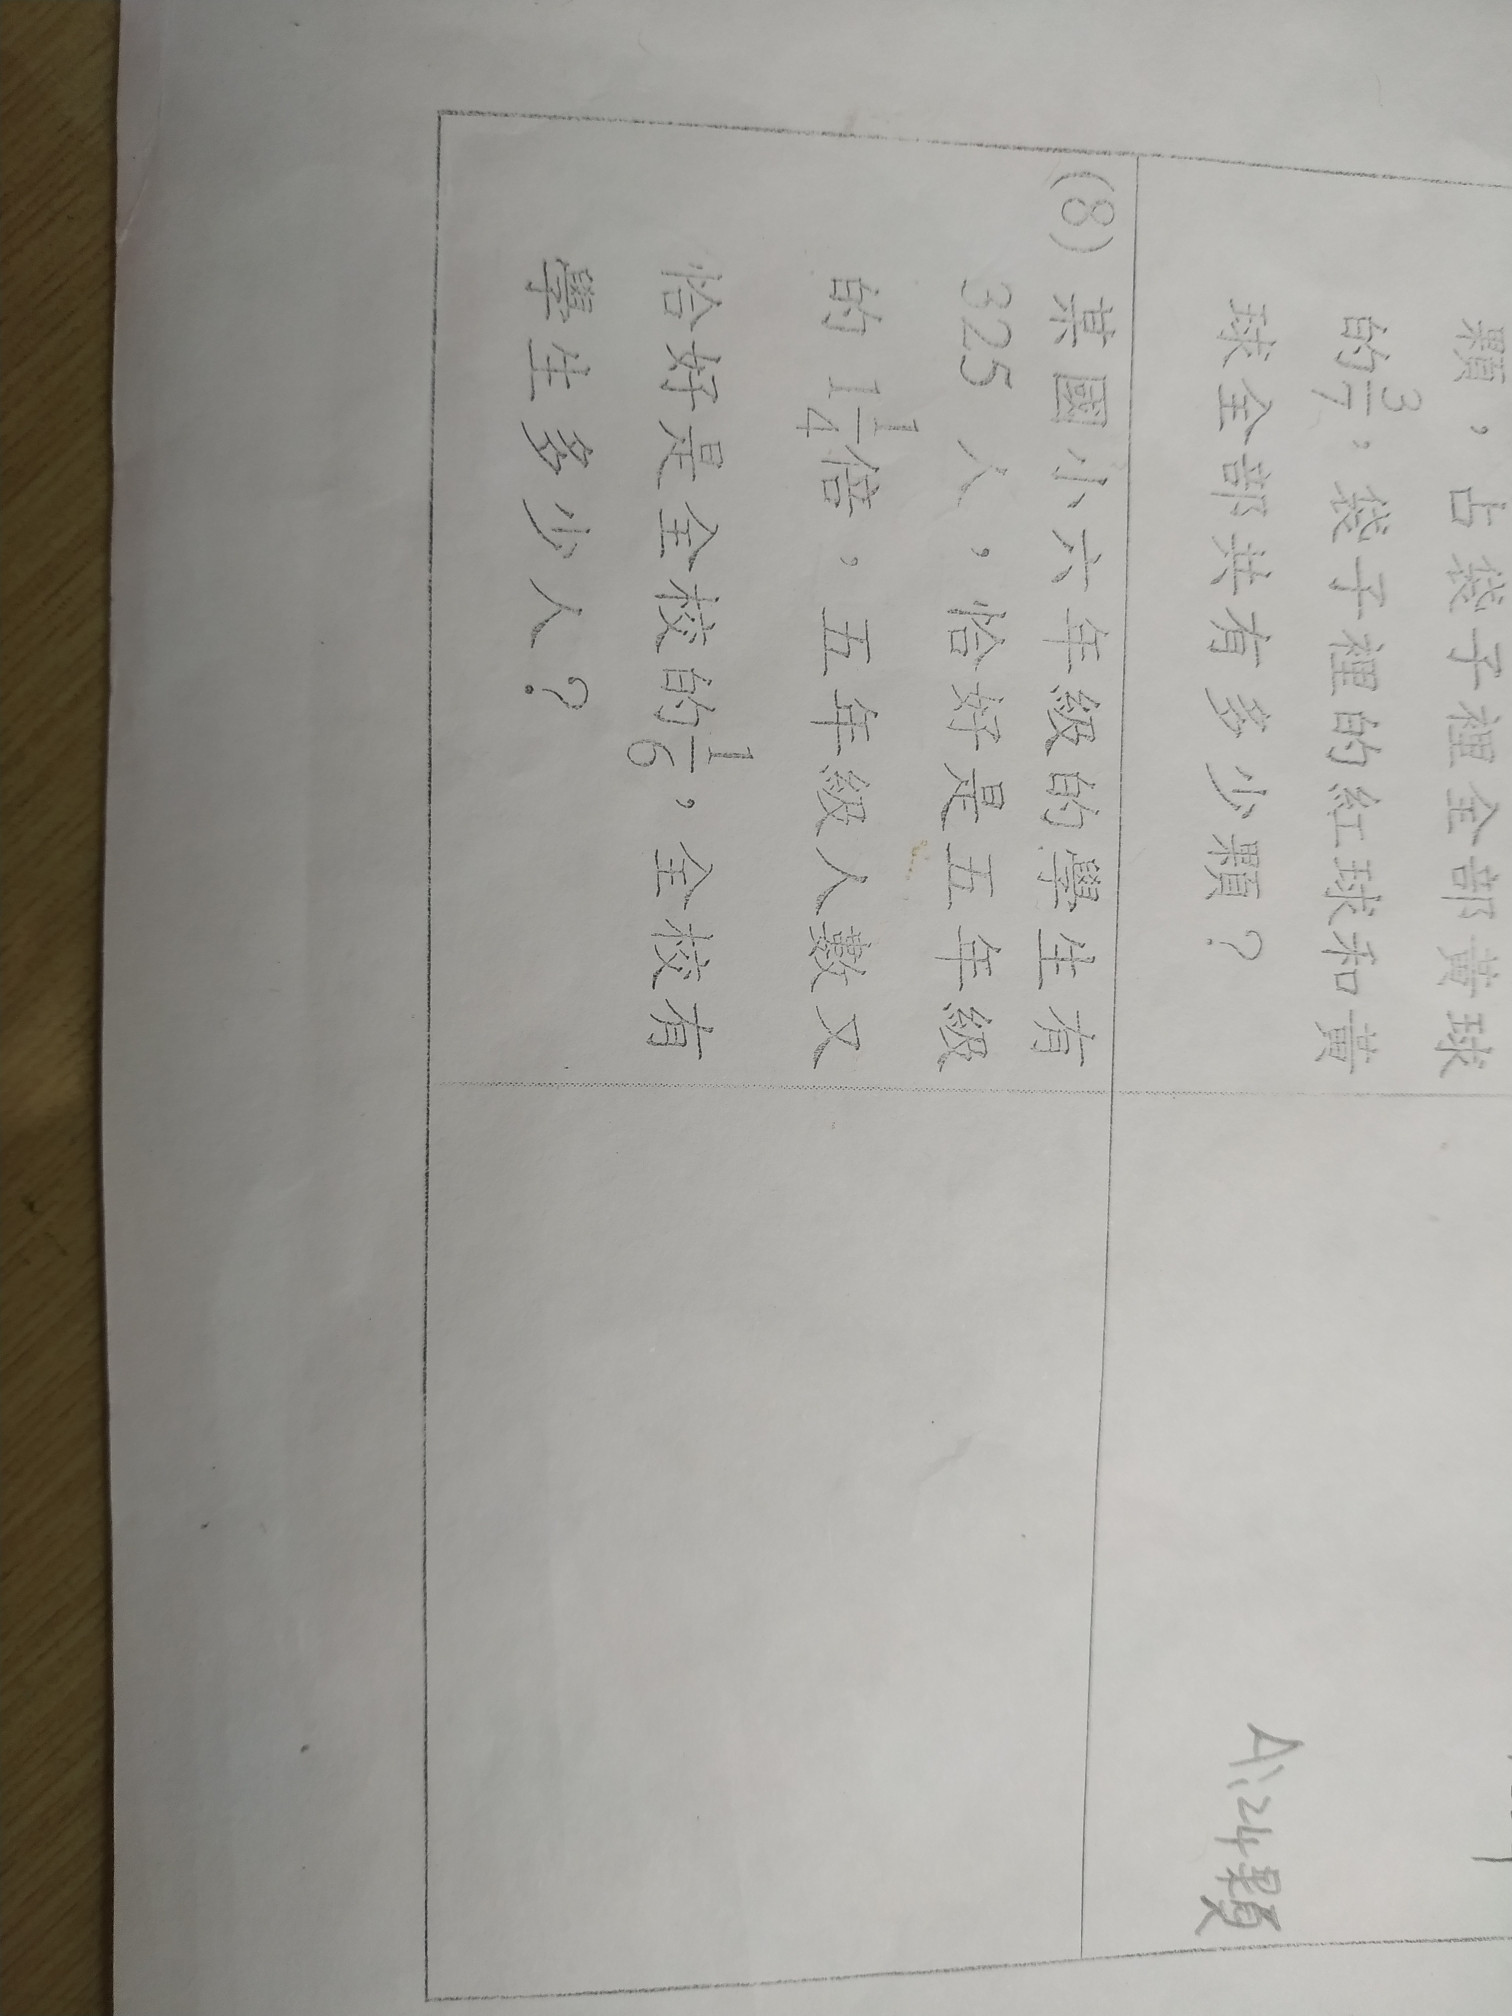 顆，占袋子裡全部黃球
的3/7，袋子裡的紅球和黃
球全部共有多少顆？
A:24顆
(8) 某國小六年級的學生有
325 人，恰好是五年級
的 1 1/4倍，五年級人數又
恰好是全校的1/6，全校有
學生多少人？